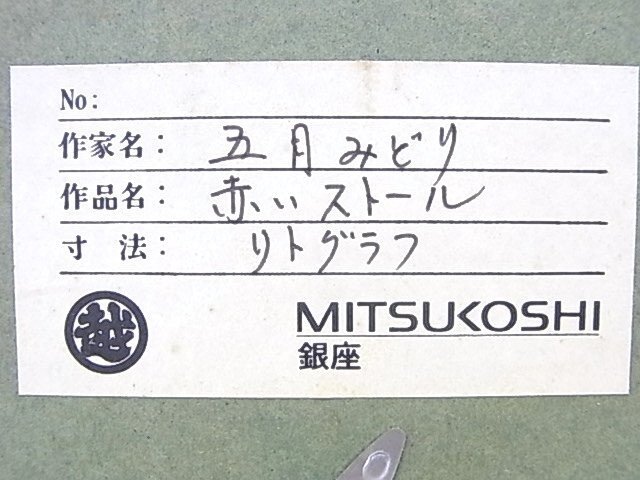 No:
作家名： 五月みどり
作品名： 赤いストール
寸 法： リトグラフ
越
MITSUKOSHI
銀座